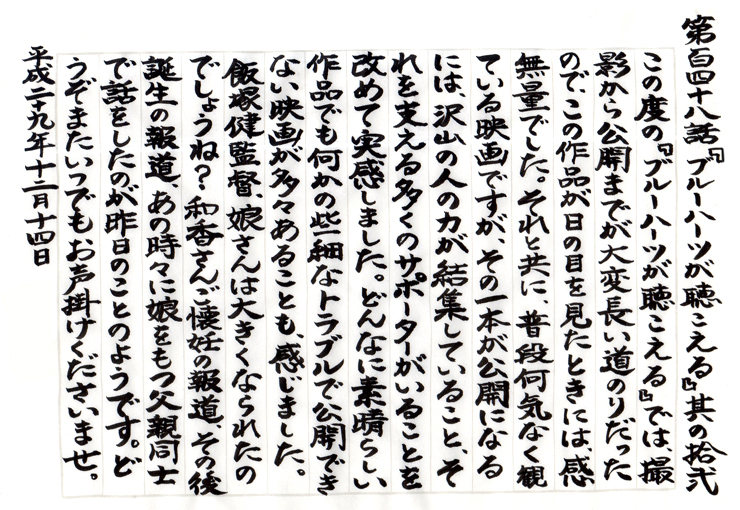 第百四十八話『ブルーハーツが聴こえる』其の拾弐
この度の、『ブルーハーツが聴こえる』では、撮
影から公開までが大変長い道のりだった
ので、この作品が日の目を見たときには、感
無量でした。それと共に、普段何気なく観
ている映画ですが、その一本が公開になる
には、沢山の人の力が結集していること、そ
れを支える多くのサポーターがいることを
改めて実感しました。どんなに素晴らしい
作品でも何かの些細なトラブルで公開でき
ない映画が多々あることも、感じました。
飯塚健監督、娘さんは大きくなられたの
でしょうね?和香さんご懐妊の報道、その後
誕生の報道、あの時々に娘をもつ父親同士
で話をしたのが昨日のことのようです。ど
うぞまたいつでもお声掛けくださいませ。
平成二十九年十二月十四日